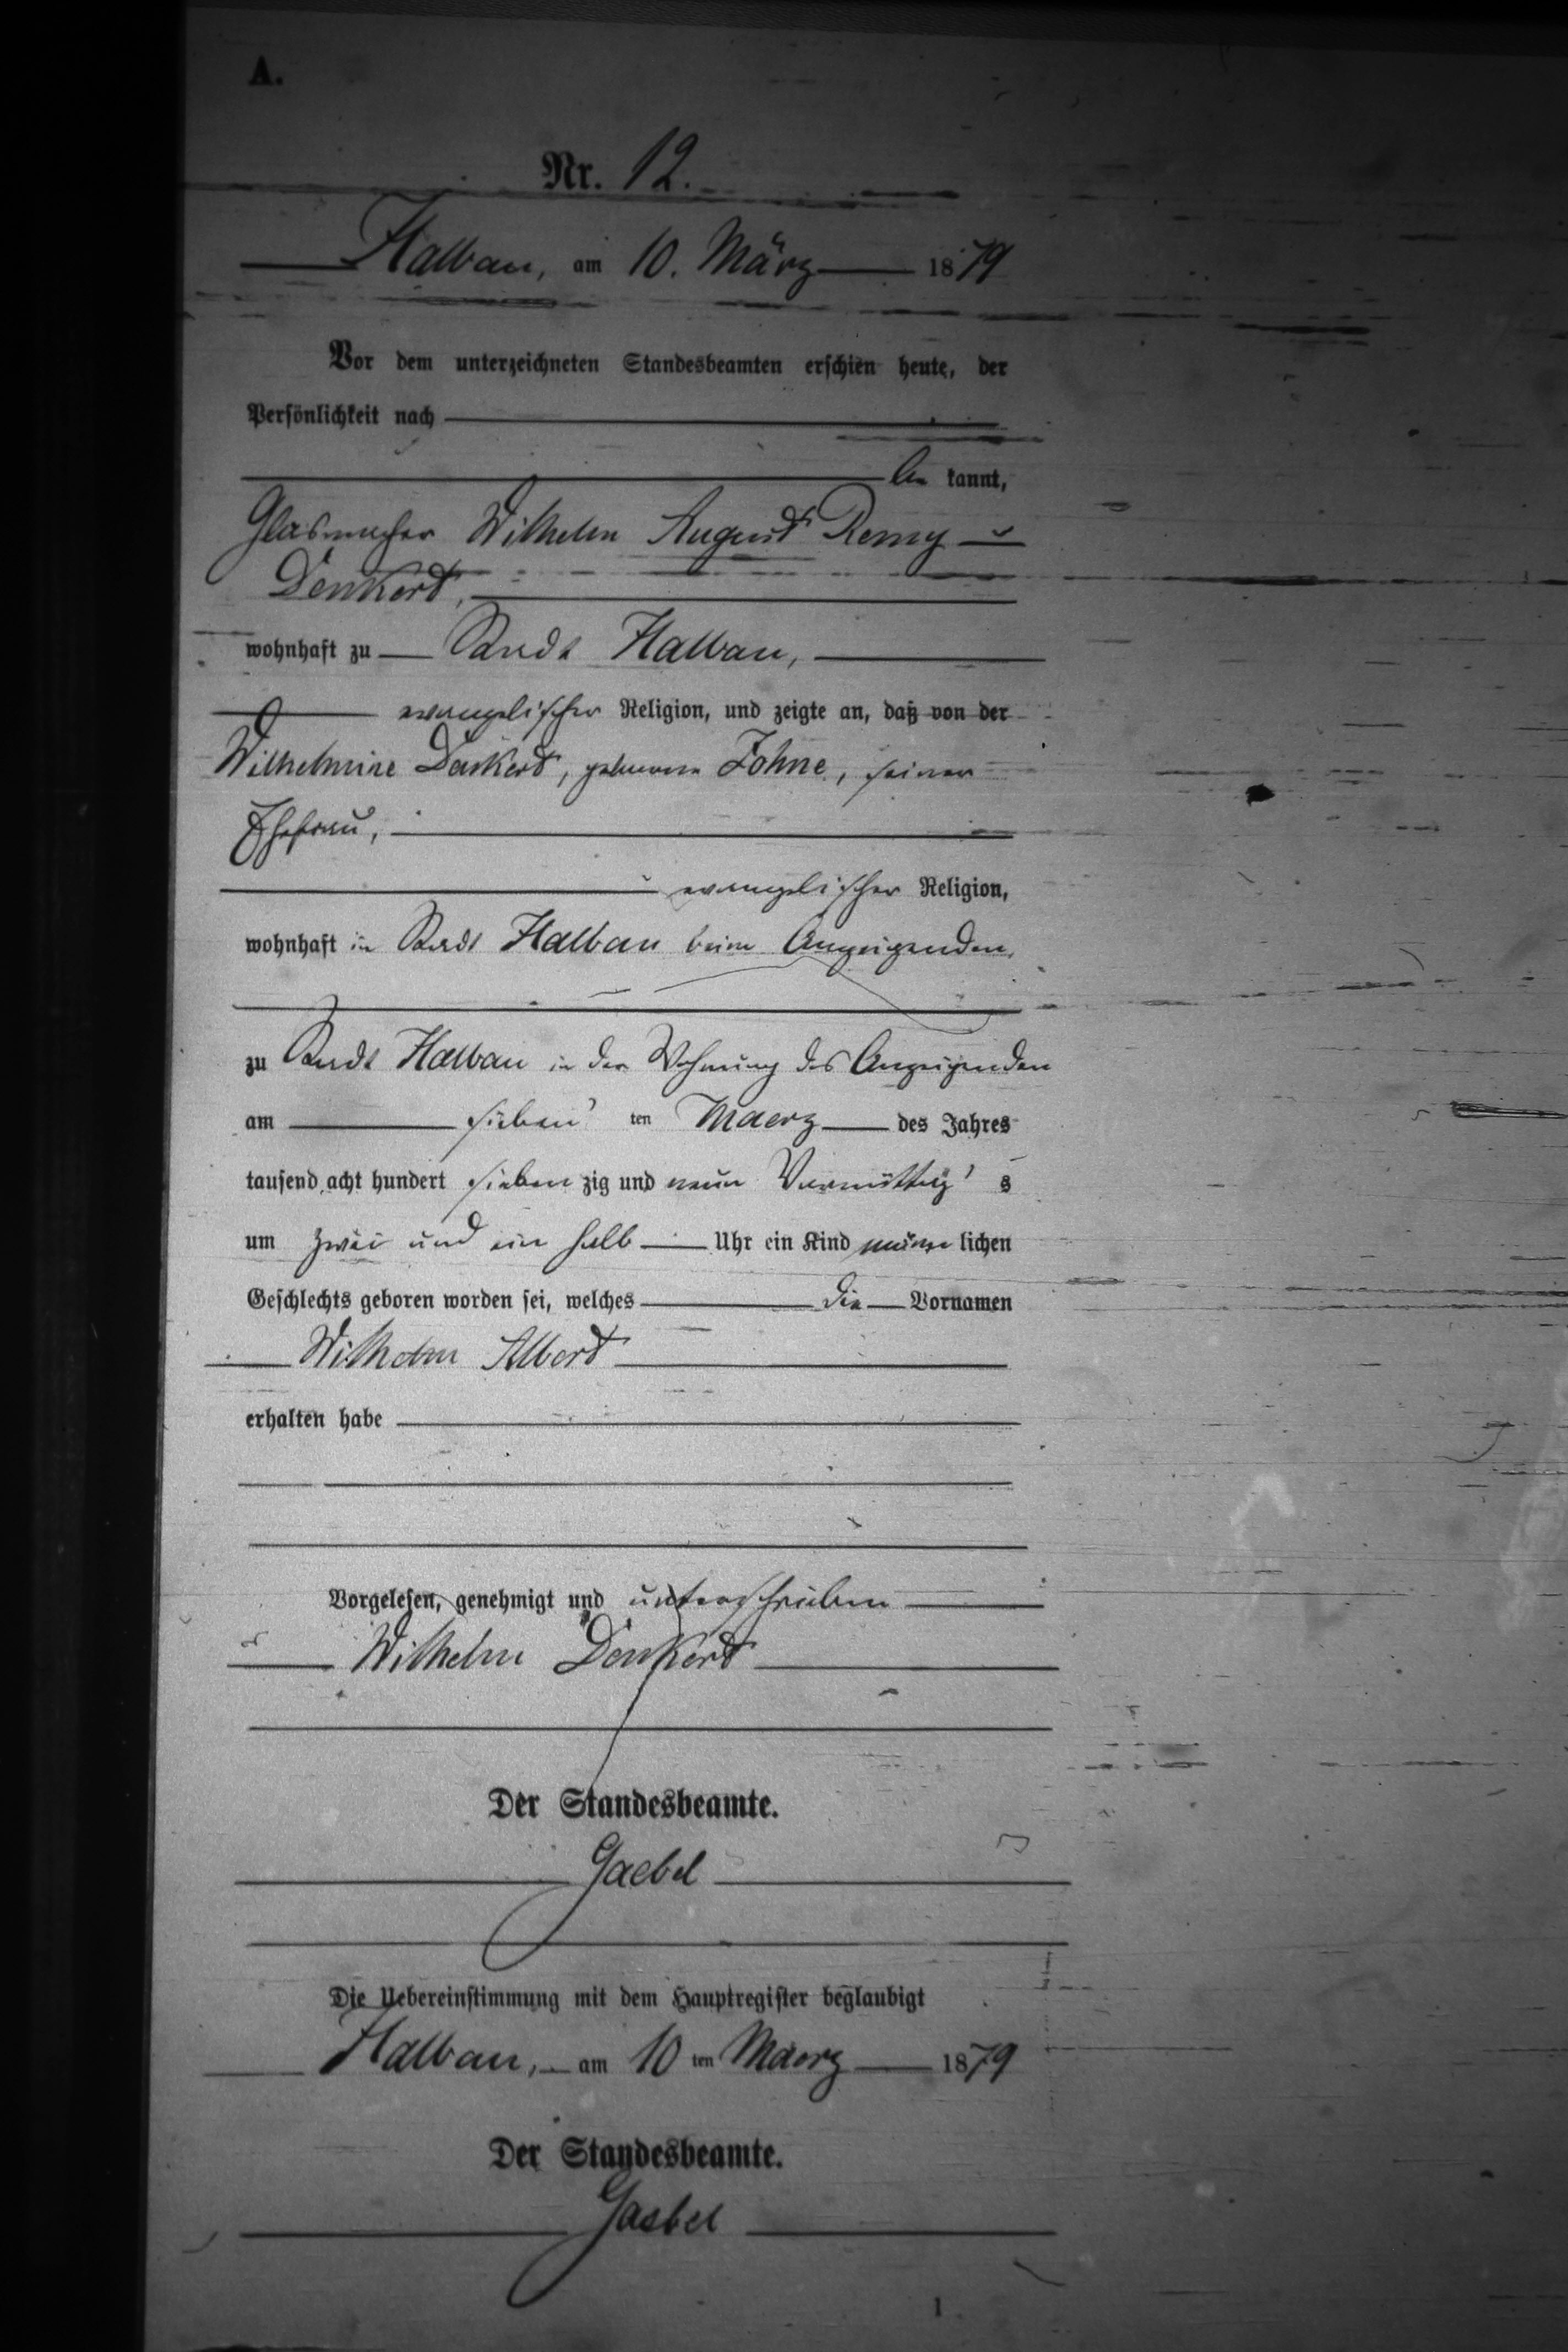 A.
Nr. 12.
Halbau, am 10. März 1879
Vor dem unterzeichneten Standesbeamten erschien heute, der
Persönlichkeit nach
be kannt,
Glasmacher Wilhelm August Remy
Denkert,
wohnhaft zu Stadt Halbau,
evangelischer Religion, und zeigte an, daß von der
Wilhelmine Denkert, geborene Johne, seiner
Ehefrau,
evangelischer Religion,
wohnhaft in Stadt Halbau beim Anzeigenden,
zu Stadt Halbau in der Wohnung des Anzeigenden
am sieben ten Maerz des Jahres
tausend acht hundert sieben zig und neun Vormittag s
um zwei und ein halb Uhr ein Kind männ lichen
Geschlechts geboren worden sei, welches die Vornamen
Wilhelm Albert
erhalten habe
Vorgelesen, genehmigt und unterschrieben
Wilhelm Denkert
Der Standesbeamte.
Gaebel
Die Uebereinstimmung mit dem Hauptregister beglaubigt
Halbau, am 10 ten Maerz 1879
Der Standesbeamte.
Gaebel
1